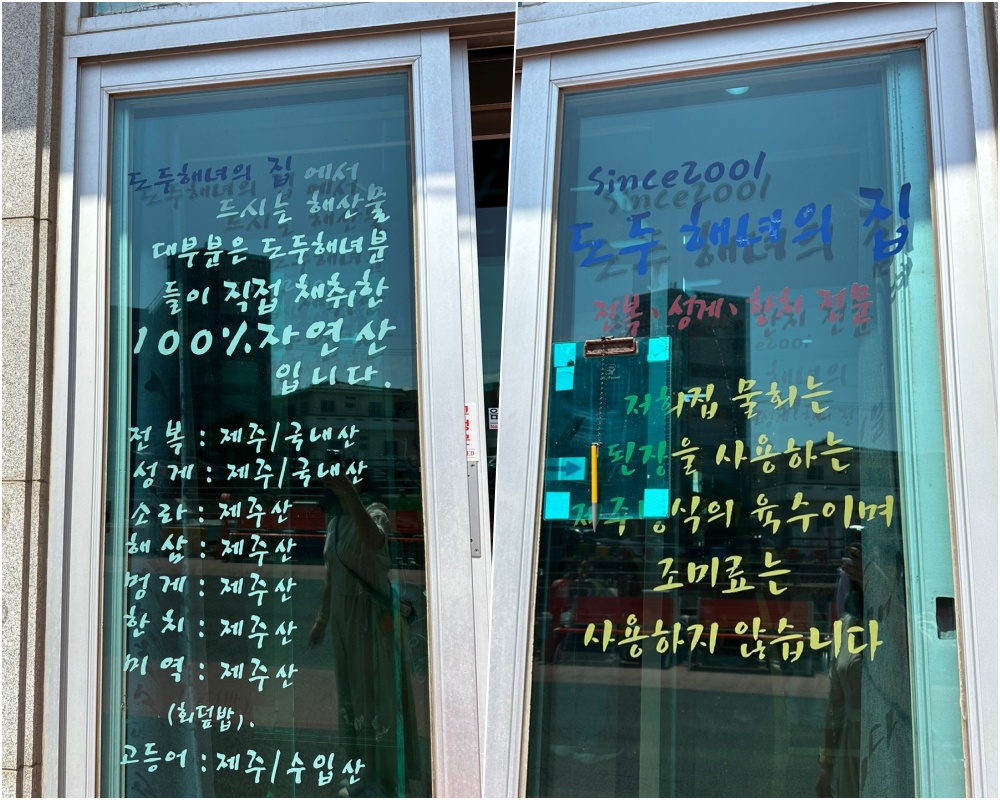 도두해녀의 집 에서
드시는 해산물
대부분은 도두해녀분
들이 직접 채취한
100%자연산
입니다.
전복 : 제주/국내산
성게 : 제주/국내산
소라 : 제주산
해삼 : 제주산
멍게 : 제주산
한치 : 제주산
미역 : 제주산
(회덮밥).
고등어 : 제주/수입산
since2001
도두 해녀의 집
전복、성게、한치 전물
저희집 물회는
된장을 사용하는
제주방식의 육수이며
조미료는
사용하지 않습니다